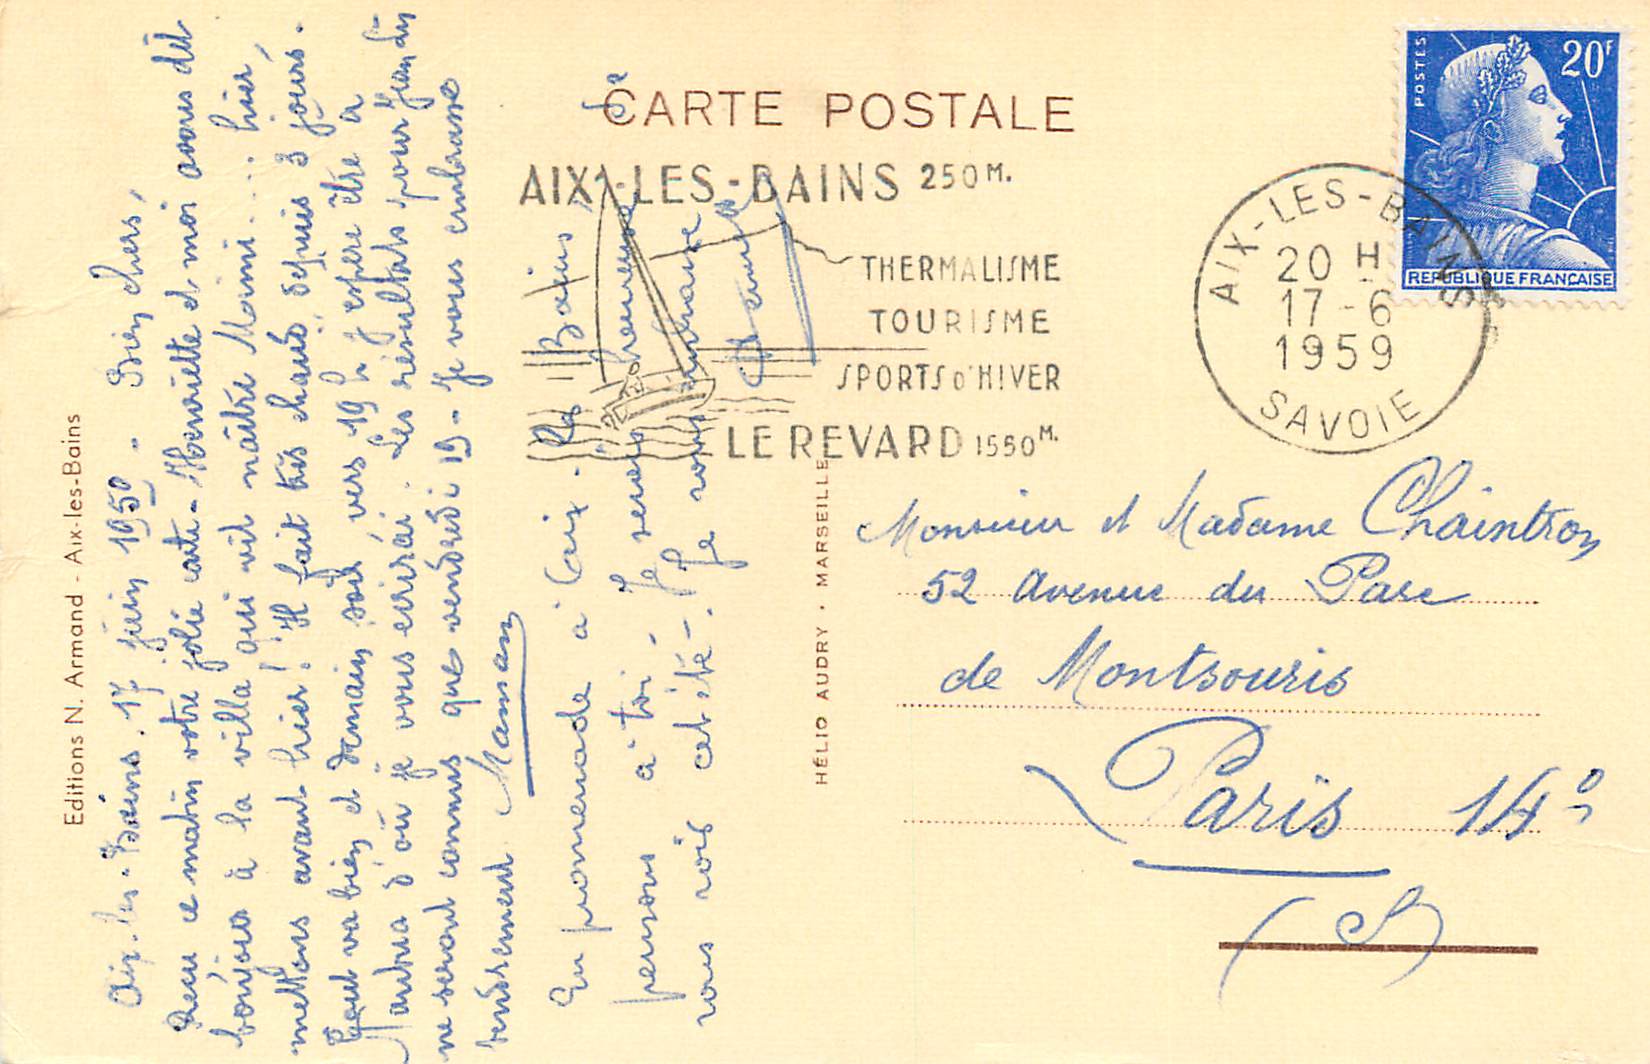 CARTE POSTALE
AIX-LES-BAINS 250 M.
THERMALISME
TOURISME
SPORTS D'HIVER
LE REVARD 1550 M.
POSTES
20F
REPUBLIQUE FRANÇAISE
AIX-LES-BAINS
20 H
17-6
1959
SAVOIE
Editions N. Armand - Aix-les-Bains
Aix-les-Bains. 17 juin 1959 - Bien chers,
Reçu ce matin votre jolie carte - Henriette et moi avons dit
bonjour à la villa qui vit naître Mimi... hier,
mettons avant hier! Il fait très chaud depuis 3 jours.
Tout va bien et demain soir, vers 19 h j'espère être à
d'où je vous écrirai. Les résultats pour Jean du
ne seront connus que vendredi 19 - Je vous embrasse
tendrement Maman
En promenade à Aix - les Bains, je
pensons à toi - Je serai heureuse
vous voir cet été - Je vous embrasse
HÉLIO AUDRY • MARSEILLE
Monsieur et Madame Chaintron
52 Avenue du Parc
de Montsouris
Paris 14e
(S)